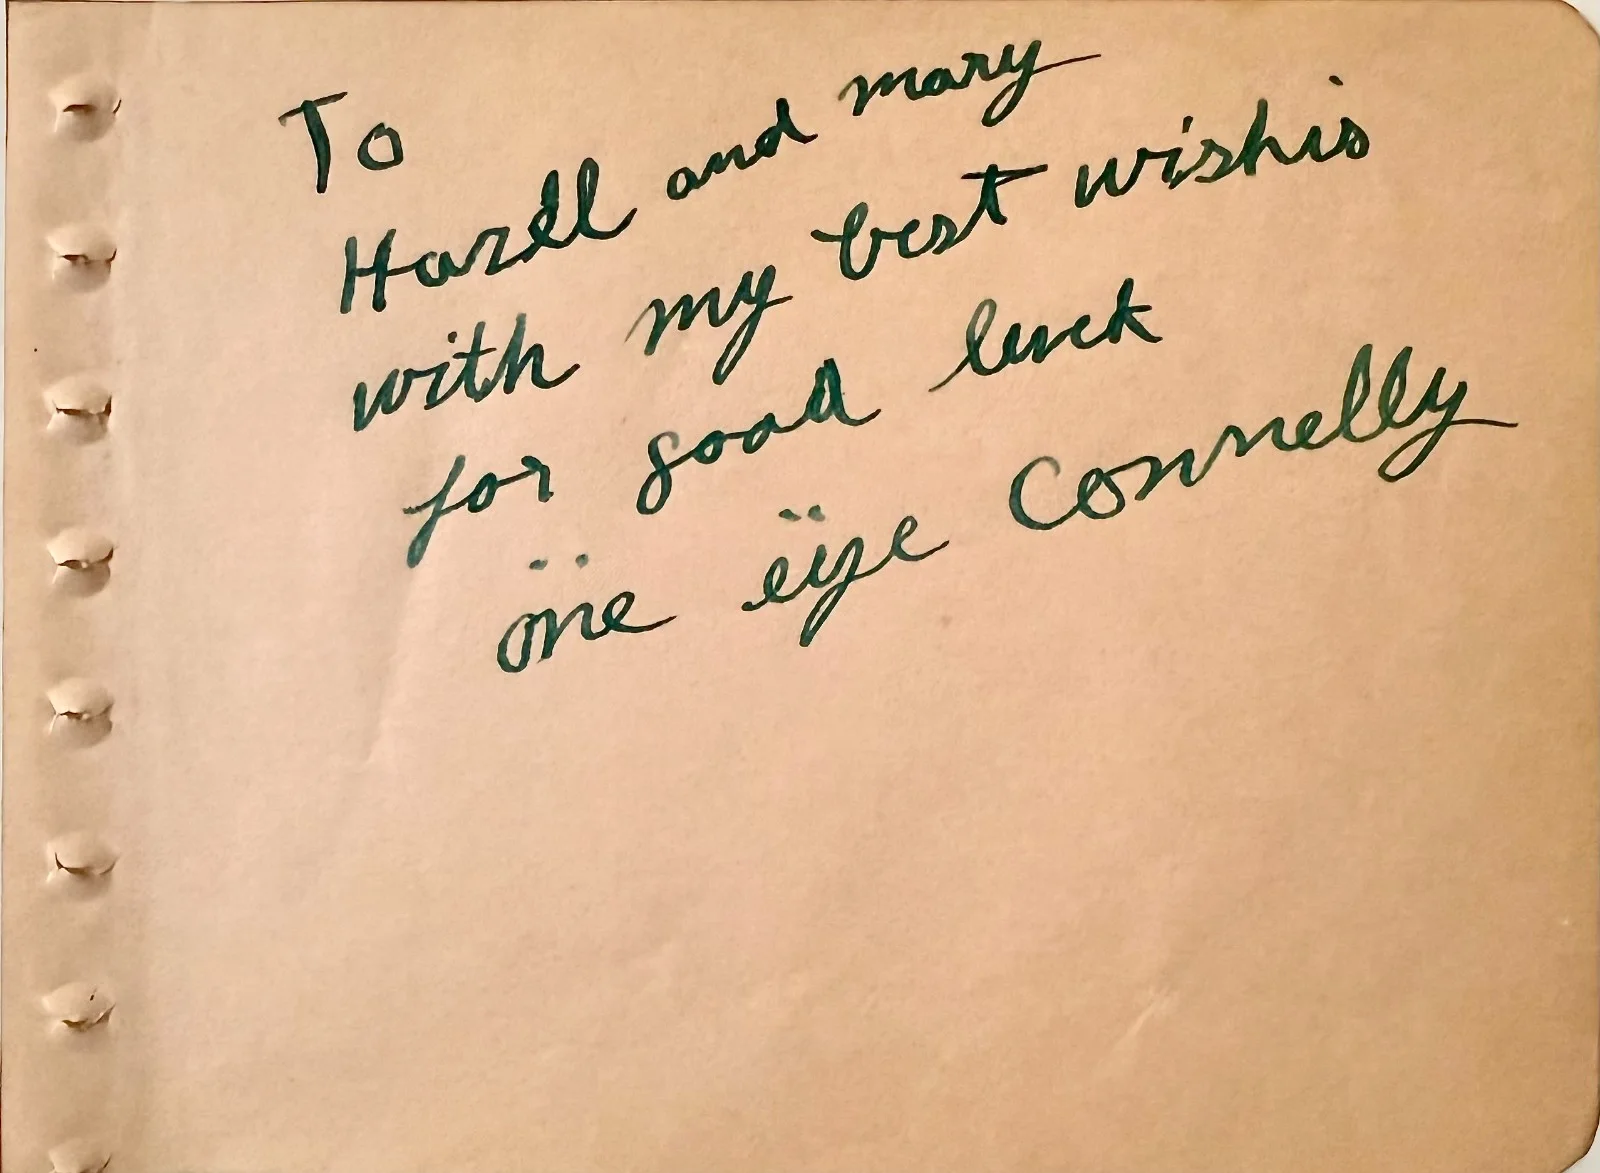 To
Hazell and mary
with my best wishis
for good luck
öne eÿe Connelly